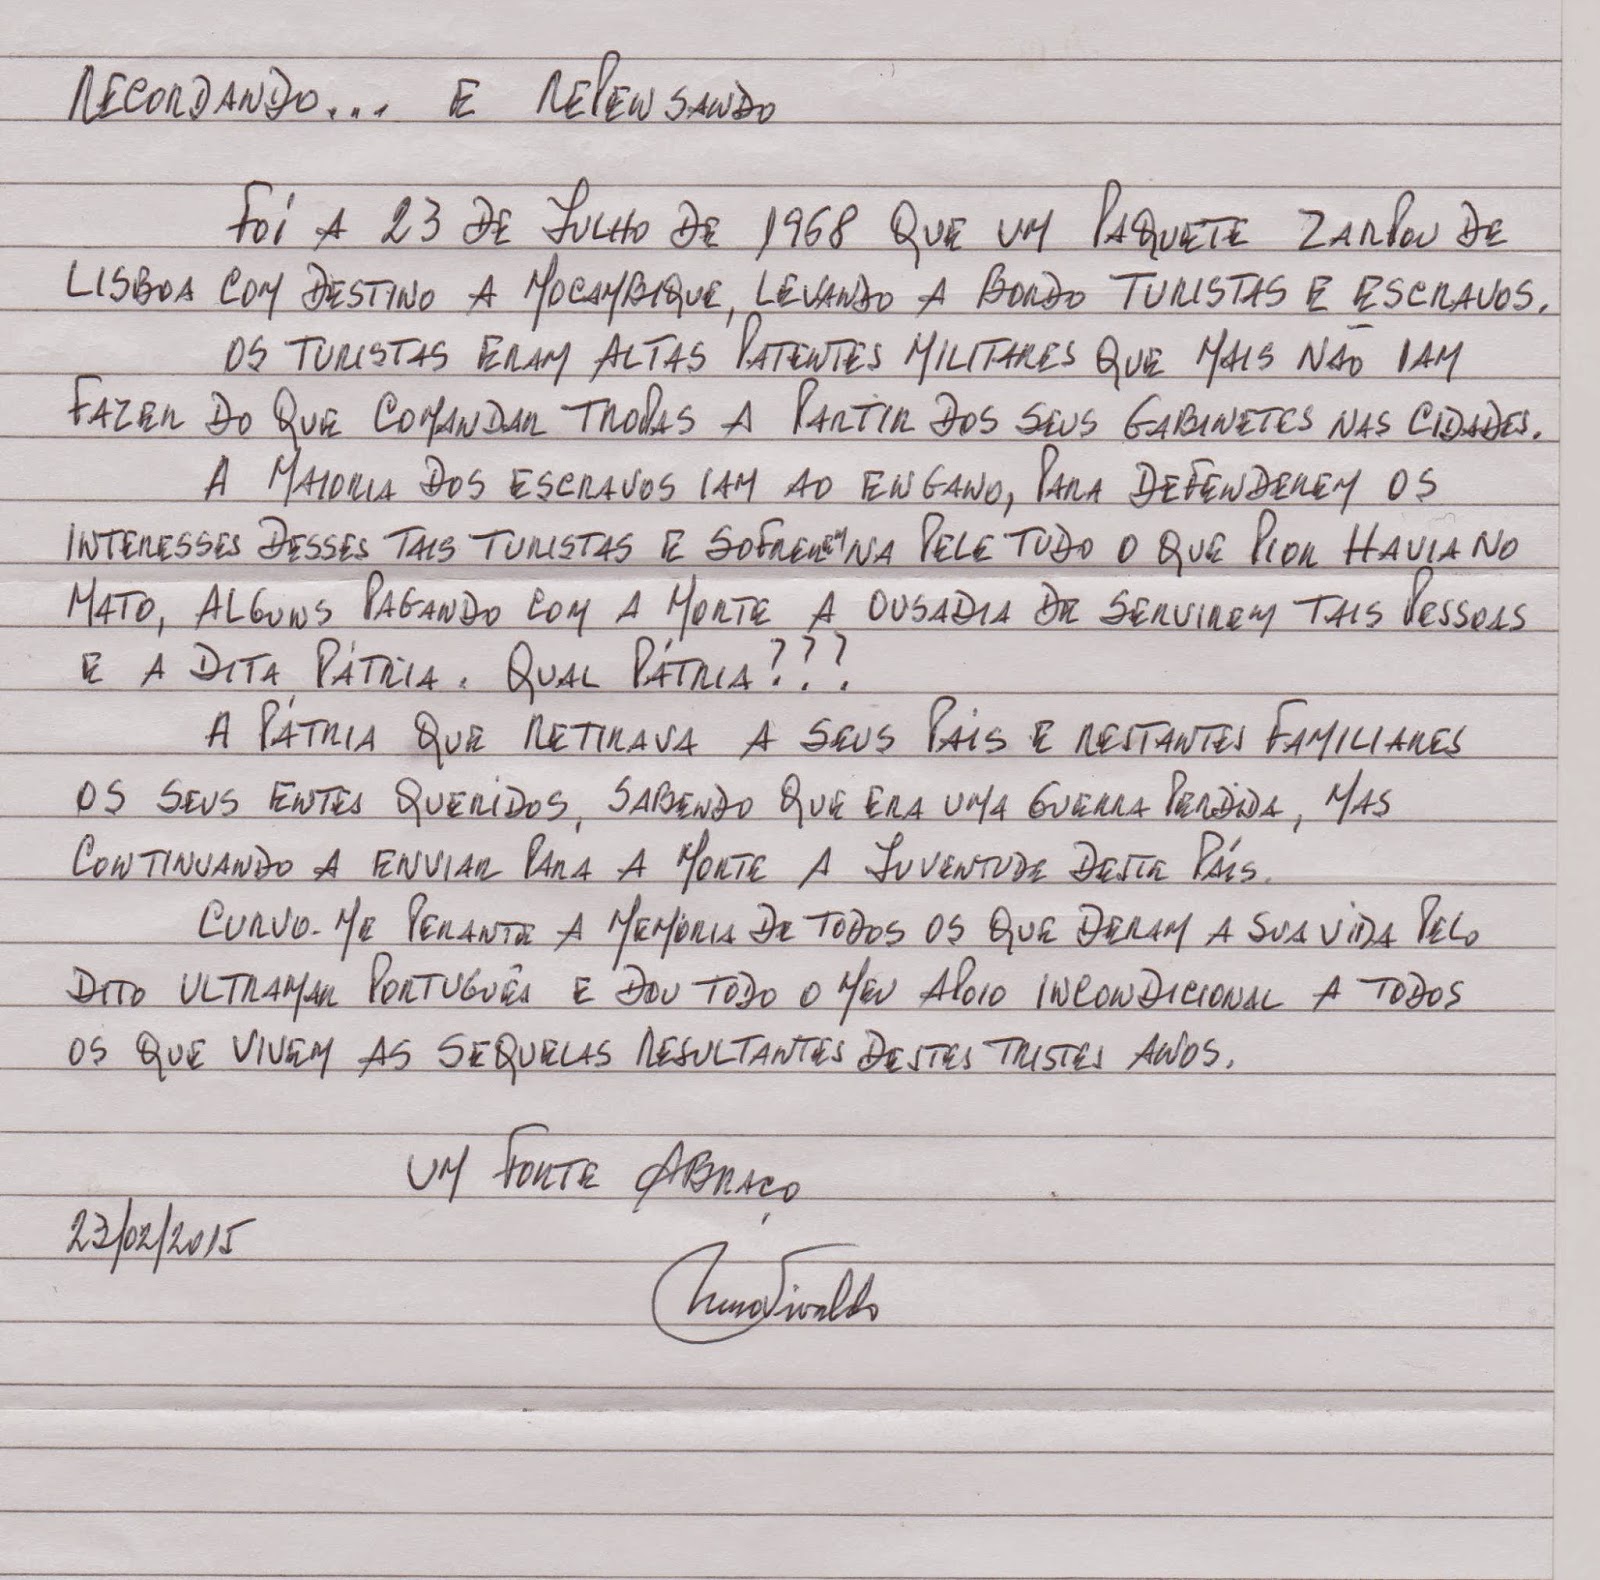 RECORDANDO... E REPENSANDO
FOI A 23 DE JULHO DE 1968 QUE UM PAQUETE ZARPOU DE
LISBOA COM DESTINO A MOCAMBIQUE, LEVANDO A BORDO TURISTAS E ESCRAVOS.
OS TURISTAS ERAM ALTAS PATENTES MILITARES QUE MAIS NÃO IAM
FAZER DO QUE COMANDAR TROPAS A PARTIR DOS SEUS GABINETES NAS CIDADES.
A MAIORIA DOS ESCRAVOS IAM AO ENGANO, PARA DEFENDEREM OS
INTERESSES DESSES TAIS TURISTAS E SOFREREM NA PELE TUDO O QUE PIOR HAVIA NO
MATO, ALGUNS PAGANDO COM A MORTE A OUSADIA DE SERVIREM TAIS PESSOAS
E A DITA PÁTRIA. QUAL PÁTRIA???
A PÁTRIA QUE RETIRAVA A SEUS PAIS E RESTANTES FAMILIARES
OS SEUS ENTES QUERIDOS, SABENDO QUE ERA UMA GUERRA PERDIDA, MAS
CONTINUANDO A ENVIAR PARA A MORTE A JUVENTUDE DESTE PAÍS.
CURVO-ME PERANTE A MEMÓRIA DE TODOS OS QUE DERAM A SUA VIDA PELO
DITO ULTRAMAR PORTUGUÊS E DOU TODO O MEU APOIO INCONDICIONAL A TODOS
OS QUE VIVEM AS SEQUELAS RESULTANTES DESTES TRISTES ANOS.
UM FORTE ABRAÇO
23/02/2015